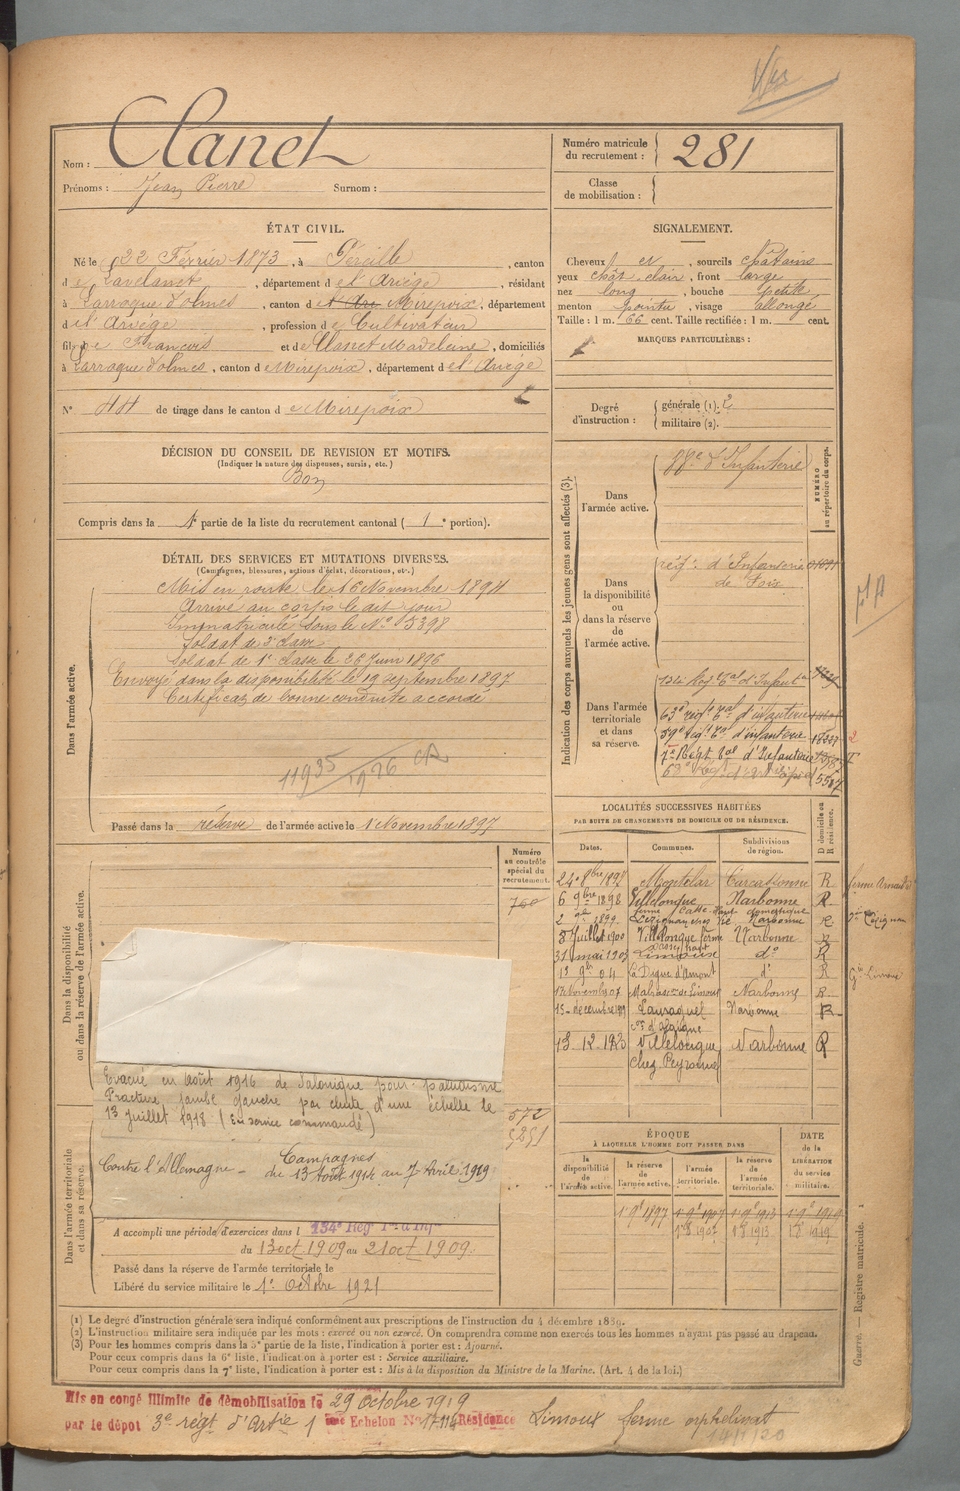 Nom : Clanet
Prénoms : Jean Pierre Surnom :
Numéro matricule du recrutement : 281
Classe de mobilisation :
ÉTAT CIVIL.
Né le 22 Février 1873, à Péreille, canton
de Lavelanet, département de l'Ariège, résidant
à Larroque d'olmes, canton de Mirepoix, département
de l'Ariège, profession de Cultivateur
fils de François et de Clanet Madeleine, domiciliés
à Larroque d'olmes, canton de Mirepoix, département de l'Ariège
N° 44 de tirage dans le canton de Mirepoix
SIGNALEMENT.
Cheveux et, sourcils châtains
yeux chât. clair, front large
nez long, bouche petite
menton pointu, visage allongé
Taille : 1 m. 66 cent. Taille rectifiée : 1 m. cent.
MARQUES PARTICULIÈRES :
Degré d'instruction : générale (1). 2
militaire (2).
DÉCISION DU CONSEIL DE REVISION ET MOTIFS.
(Indiquer la nature des dispenses, sursis, etc.)
Bon
Compris dans la 1e partie de la liste du recrutement cantonal ( 1e portion).
DÉTAIL DES SERVICES ET MUTATIONS DIVERSES.
(Campagnes, blessures, actions d'éclat, décorations, etc.)
Dans l'armée active.
Mis en route le 16 Novembre 1894
Arrivé au corps le dit jour
Immatriculé sous le N° 5398
Soldat de 2e classe
Soldat de 1e classe le 26 Juin 1896
Envoyé dans la disponibilité le 19 septembre 1897
Certificat de bonne conduite accordé
11935
1926
Passé dans la réserve de l'armée active le 1 Novembre 1897
Indication des corps auxquels les jeunes gens sont affectés (3).
NUMÉRO au répertoire du corps.
Dans l'armée active.
88e d'Infanterie
Dans la disponibilité ou dans la réserve de l'armée active.
régt d'Infanterie
de Foix
Dans l'armée territoriale et dans sa réserve.
134 Reg Tal d'Infant
63e régt Tal d'infanterie
59e régt Tal d'infanterie 18227
7e Régt Tal d'Infanterie
5587
LOCALITÉS SUCCESSIVES HABITÉES
PAR SUITE DE CHANGEMENTS DE DOMICILE OU DE RÉSIDENCE.
D domicile ou R résidence.
Dates. Communes. Subdivisions de région.
24 8bre 1897 Montclar Carcassonne R
6 9bre 1898 Villelongue Narbonne R
1899 Narbonne R
8 Juillet 1900 Villelongue ferme Narbonne R
31 mai 1903 Limoux do R
1er 9bre 04 La Digne d'Amont do R
17 Novembre 07 Narbonne R
15 decembre 1909 Lauraguel Narbonne R
13.12.1923 Villelongue Narbonne R
chez Peyronnel
Dans la disponibilité ou dans la réserve de l'armée active.
Numéro au contrôle spécial du recrutement.
760
Evacué en Août 1916 de Salonique pour paludisme
Fracture jambe gauche par chute d'une échelle le
13 Juillet 1918 (En service commandé)
572
Dans l'armée territoriale et dans sa réserve.
Campagnes
Contre l'Allemagne - du 13 Août 1914 au 7 Avril 1919
A accompli une période d'exercices dans l 134e Rég Tal d'Inf
du 13 oct 1909 au 21 oct 1909.
Passé dans la réserve de l'armée territoriale le
Libéré du service militaire le 1er Octobre 1921
ÉPOQUE
À LAQUELLE L'HOMME DOIT PASSER DANS
DATE de la LIBÉRATION du service militaire.
la disponibilité de l'armée active. la réserve de l'armée active. l'armée territoriale. la réserve de l'armée territoriale.
1er 9bre 1897 1er 9bre 1907 1er 9bre 1913 1er 9bre 1919
1907 1913 1919
(1) Le degré d'instruction générale sera indiqué conformément aux prescriptions de l'instruction du 4 décembre 1889.
(2) L'instruction militaire sera indiquée par les mots : exercé ou non exercé. On comprendra comme non exercés tous les hommes n'ayant pas passé au drapeau.
(3) Pour les hommes compris dans la 5e partie de la liste, l'indication à porter est : Ajourné.
Pour ceux compris dans la 6e liste, l'indication à porter est : Service auxiliaire.
Pour ceux compris dans la 7e liste, l'indication à porter est : Mis à la disposition du Ministre de la Marine. (Art. 4 de la loi.)
Guerre. — Registre matricule. 1
Mis en congé illimité de démobilisation le 29 octobre 1919
par le dépôt 3e régt d'Artie 1 Echelon N° 17114 Résidence Limoux ferme orphelinat